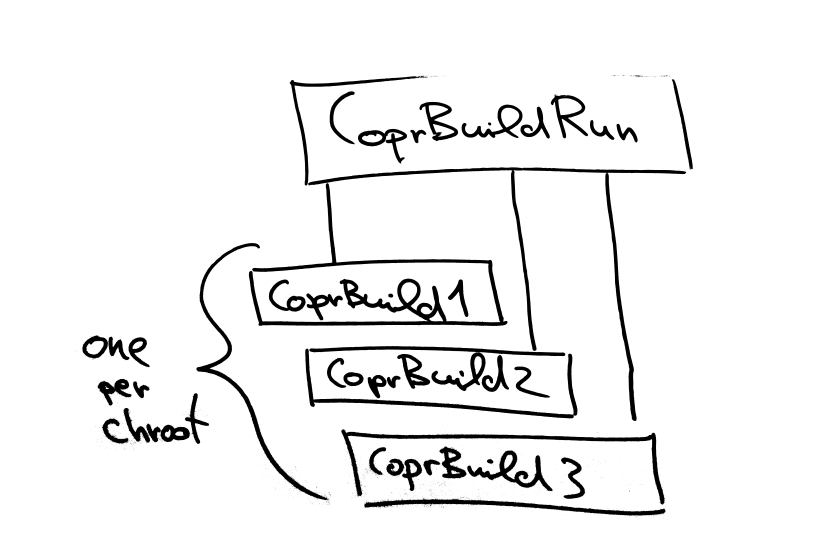 CoprBuildRun
CoprBuild1
CoprBuild2
CoprBuild3
one
per
chroot